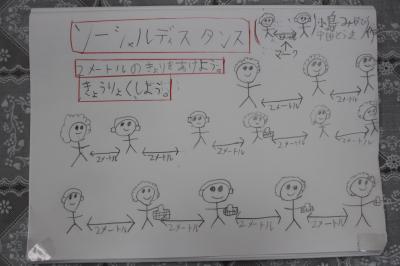 ソーシャルディスタンス
マーク
2メートルのきょりをあけよう。
きょうりょくしよう。
2メートル
2メートル
2メートル
2メートル
2メートル
2メートル
2メートル
2メートル
2メートル
2メートル